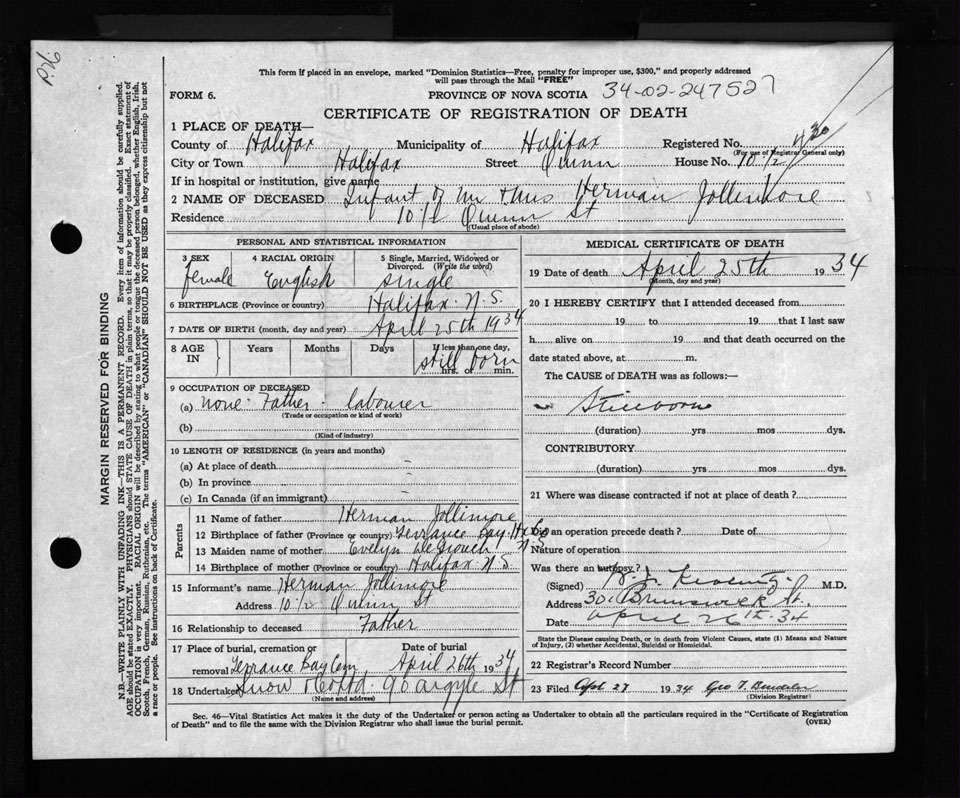 This form if placed in an envelope, marked "Dominion Statistics—Free, penalty for improper use, $300," and properly addressed
will pass through the Mail "FREE"
FORM 6. PROVINCE OF NOVA SCOTIA 34-02-247527
CERTIFICATE OF REGISTRATION OF DEATH
1 PLACE OF DEATH—
County of Halifax Municipality of Halifax Registered No.
(For use of Registrar General only)
City or Town Halifax Street Quinn House No. 10 1/2
If in hospital or institution, give name
2 NAME OF DECEASED Infant of Mr & Mrs Herman Jollimore
Residence 10 1/2 Quinn St
(Usual place of abode)
PERSONAL AND STATISTICAL INFORMATION
3 SEX 4 RACIAL ORIGIN 5 Single, Married, Widowed or
Divorced. (Write the word)
female English single
6 BIRTHPLACE (Province or country) Halifax. N.S.
7 DATE OF BIRTH (month, day and year) April 25th 1934
8 AGE IN Years Months Days If less than one day,
still born
hrs. or min.
9 OCCUPATION OF DECEASED
(a) none. Father. labourer
(Trade or occupation or kind of work)
(b)
(Kind of industry)
10 LENGTH OF RESIDENCE (in years and months)
(a) At place of death –
(b) In province –
(c) In Canada (if an immigrant) –
Parents
11 Name of father Herman Jollimore
12 Birthplace of father (Province or country) Terrance Bay Hx Co
N.S.
13 Maiden name of mother Evelyn
14 Birthplace of mother (Province or country) Halifax N.S.
15 Informant's name Herman Jollimore
Address 10 1/2 Quinn St
16 Relationship to deceased Father
17 Place of burial, cremation or Date of burial
removal Terrance Bay Cem April 26th 1934
18 Undertaker Snow & Co Ltd. 90 Argyle St
(Name and address)
MEDICAL CERTIFICATE OF DEATH
19 Date of death April 25th 1934
(Month, day and year)
20 I HEREBY CERTIFY that I attended deceased from
19 to 19 that I last saw
h alive on 19 and that death occurred on the
date stated above, at m.
The CAUSE of DEATH was as follows:—
Stillborn
(duration) yrs mos dys.
CONTRIBUTORY
(duration) yrs mos dys.
21 Where was disease contracted if not at place of death?
Did an operation precede death? Date of
Nature of operation
Was there an autopsy?
(Signed) M.D.
Address 301 Brunswick St.
Date April 26th. 34
State the Disease causing Death, or in death from Violent Causes, state (1) Means and Nature
of Injury, (2) whether Accidental, Suicidal or Homicidal.
22 Registrar's Record Number
23 Filed Apl 27 1934 Geo T.
(Division Registrar)
Sec. 46—Vital Statistics Act makes it the duty of the Undertaker or person acting as Undertaker to obtain all the particulars required in the "Certificate of Registration
of Death" and to file the same with the Division Registrar who shall issue the burial permit. (OVER)
MARGIN RESERVED FOR BINDING
N.B.—WRITE PLAINLY WITH UNFADING INK—THIS IS A PERMANENT RECORD. Every item of information should be carefully supplied.
AGE should be stated EXACTLY. PHYSICIANS should STATE CAUSE OF DEATH in plain terms, so that it may be properly classified. Exact statement of
OCCUPATION is very important. RACIAL ORIGIN will be described by stating to what people or tongue the deceased person belonged, whether English, Irish,
Scotch, French, German, Russian, Ruthenian, etc. The terms "AMERICAN" or "CANADIAN" SHOULD NOT BE USED as they express citizenship but not
a race or people. See instructions on back of Certificate.